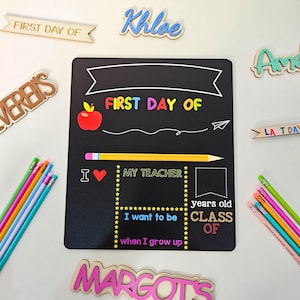 FIRST DAY OF
Khloe
FIRST DAY OF
LAST DAY
I
MY TEACHER
I want to be
when I grow up
years old
CLASS
OF
MARGOT'S